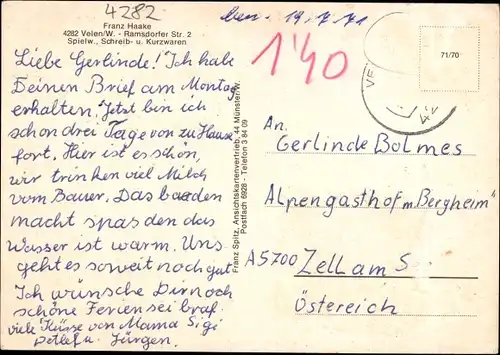 4282
Franz Haake
4282 Velen/W. - Ramsdorfer Str. 2
Spielw., Schreib- u. Kurzwaren
den 19.7.71
Liebe Gerlinde! Ich habe
Deinen Brief am Montag
erhalten. Jetzt bin ich
schon drei Tage von zu Hause
fort. Hier ist es schön,
wir trinken viel Milch
vom Bauer. Das baaden
macht spas den das
Wasser ist warm. Uns
geht es soweit noch gut
Ich wünsche Dir noch
schöne Ferien sei braf
viele Küsse von Mama Sigi
Detlef u. Jürgen.
Franz Spitz, Ansichtskartenvertrieb, 44 Münster/W.
Postfach 6928 - Telefon 3 84 09
1'40
71/70
An.
Gerlinde Bolmes
Alpengasthof m. Bergheim"
A5700 Zell am S
Östereich